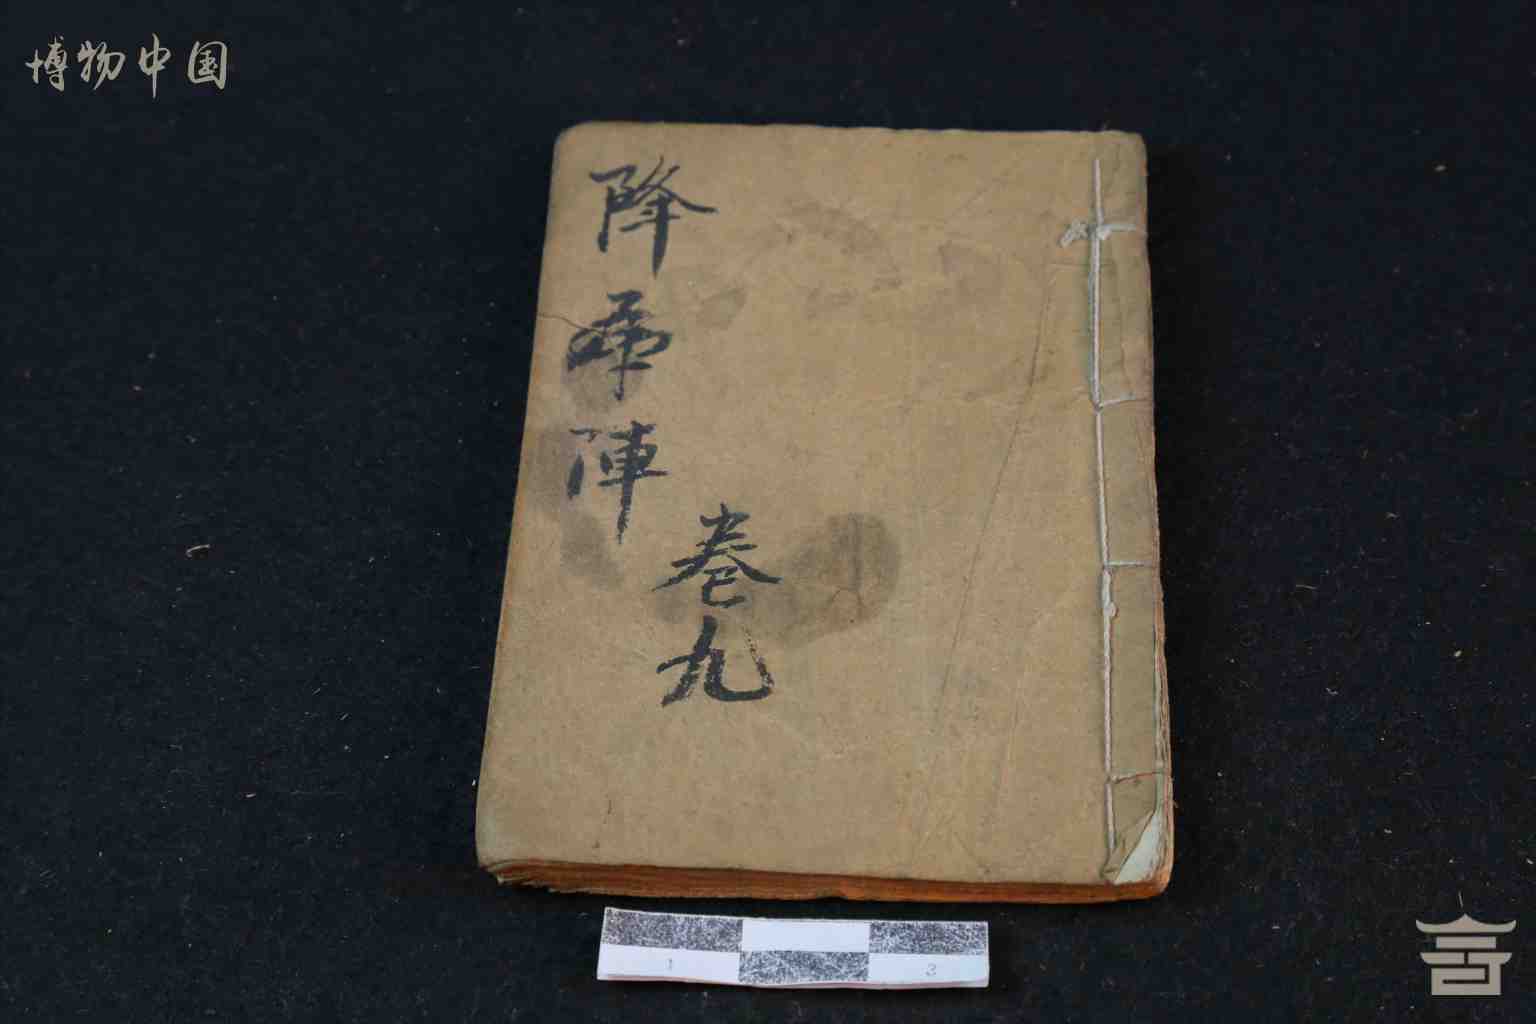 博物中国
降虎陣
卷九
1 3